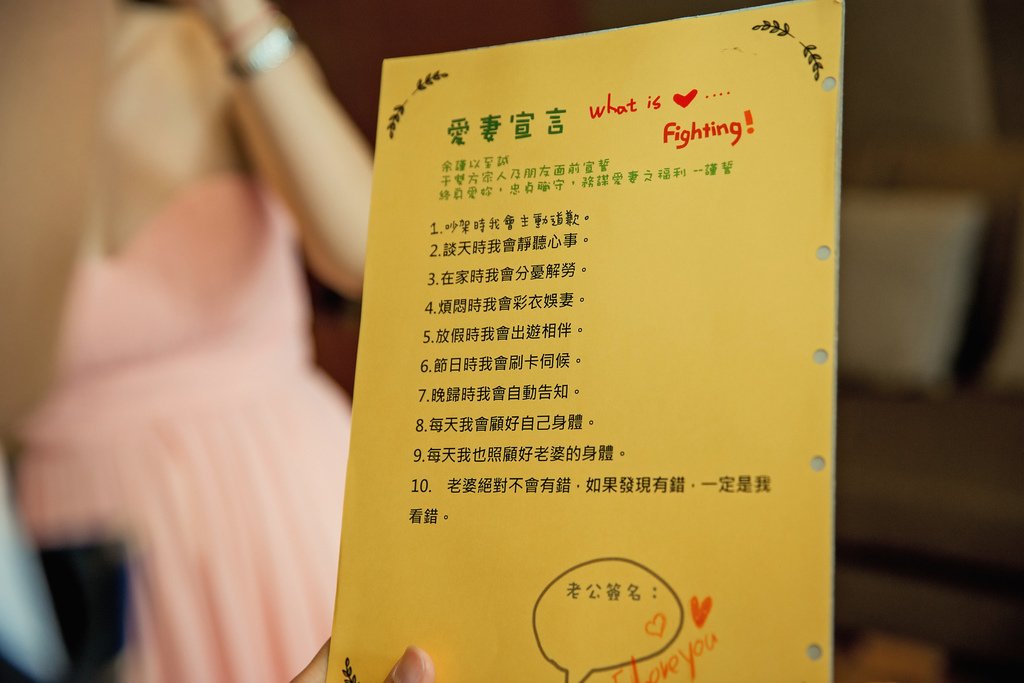 愛妻宣言 what is ❤ ....
Fighting!
余謹以至誠
于雙方宗人及朋友面前宣誓
終身愛妳，忠貞職守，務謀愛妻之福利 --謹誓
1.吵架時我會主動道歉。
2.談天時我會靜聽心事。
3.在家時我會分憂解勞。
4.煩悶時我會彩衣娛妻。
5.放假時我會出遊相伴。
6.節日時我會刷卡伺候。
7.晚歸時我會自動告知。
8.每天我會顧好自己身體。
9.每天我也照顧好老婆的身體。
10. 老婆絕對不會有錯，如果發現有錯，一定是我
看錯。
老公簽名：
I love you